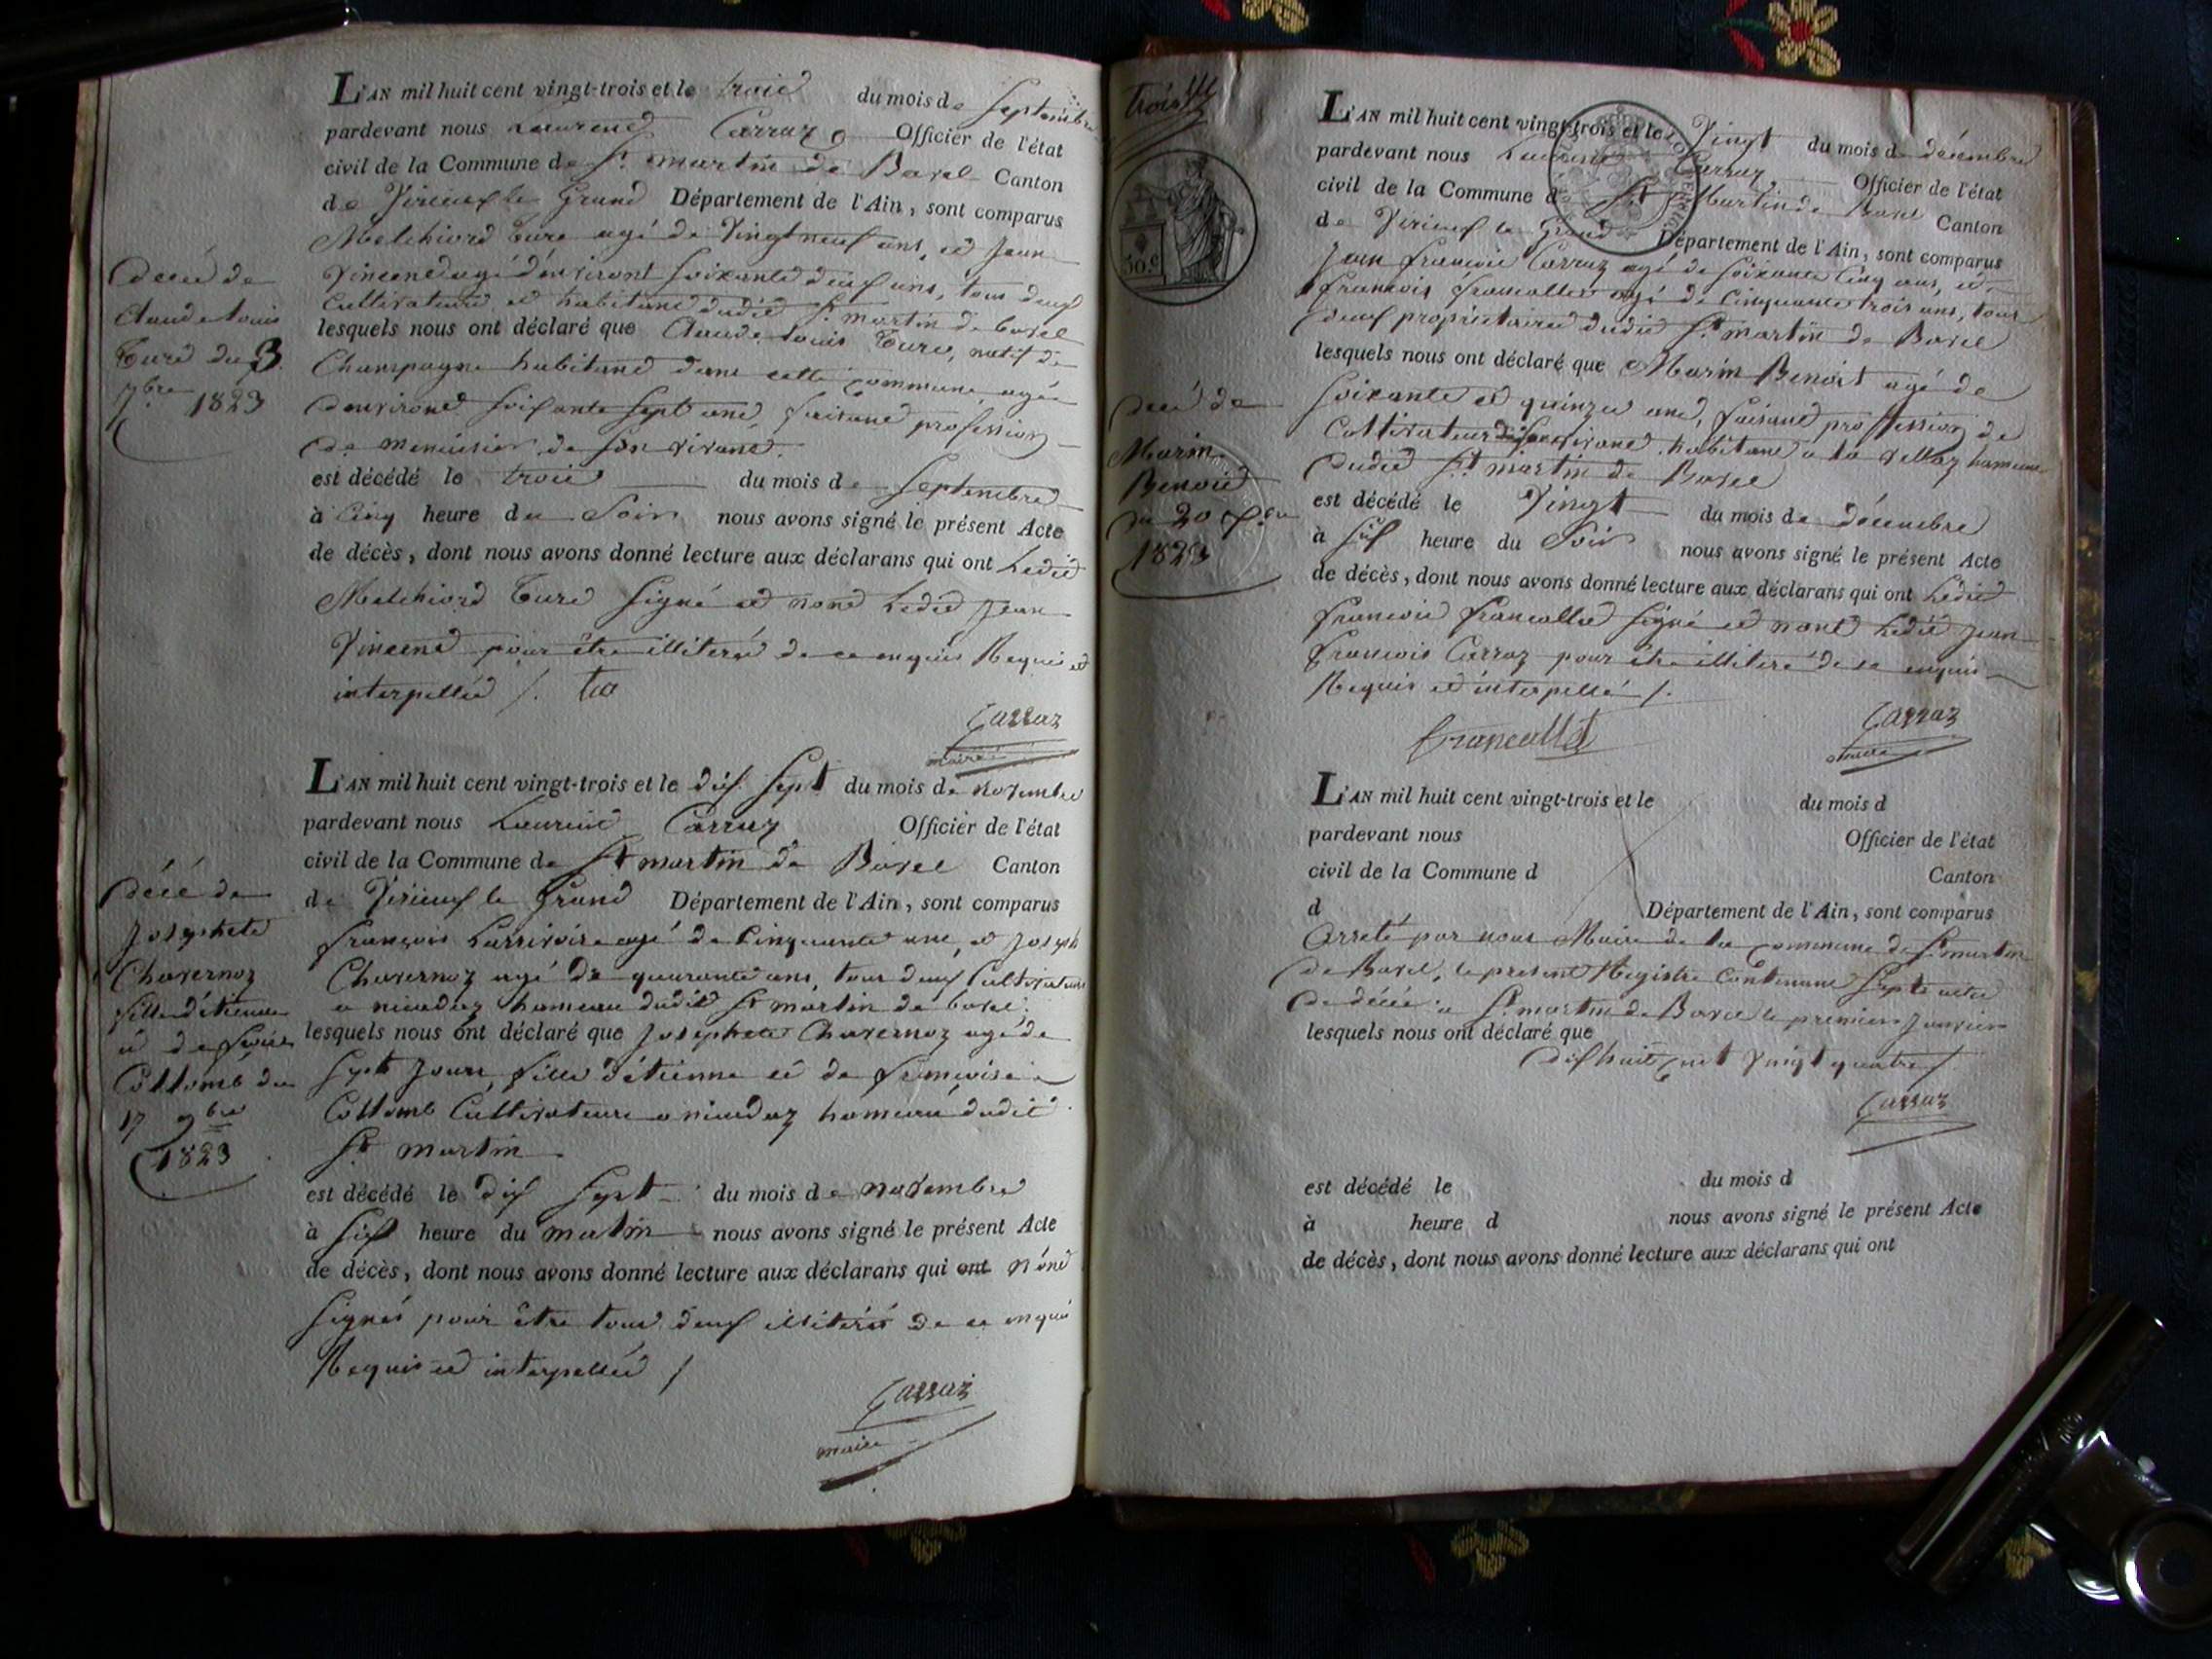 L'AN mil huit cent vingt-trois et le trois du mois de Septembre
pardevant nous Laurend Carraz Officier de l'état
civil de la Commune de St martin de Bavel Canton
de Virieux le Grand Département de l'Ain, sont comparus
Melchiord Ture agé de Vingt neuf ans, et Jean
Vincend agé d'environt soixante deux ans, tous deux
Cultivateurs et habitand dudit St martin de bavel
lesquels nous ont déclaré que Claude Louis Ture, natif de
Champagne habitand dans cette commune, agée
denvirond soixante sept ans, faisand profession
de menuisier de son vivand.
est décédé le trois du mois de Septembre
à cinq heure du Soir nous avons signé le présent Acte
de décès, dont nous avons donné lecture aux déclarans qui ont Ledit
Melchiord Ture signé et nond Ledit Jean
Vincend pour être illiteré de ce enquis Requis et
interpellé /.
Carraz
maire
décé de
Claude Louis
Ture du 3
7bre 1823
L'AN mil huit cent vingt-trois et le dix Sept du mois de novembre
pardevant nous Laurend Carraz Officier de l'état
civil de la Commune de St martin de Bavel Canton
de Virieux le Grand Département de l'Ain, sont comparus
françois Larrivoire agé de Cinquante ans, et Joseph
Chavernoz agé de quarante ans, tous deux Cultivateurs
a niudaz hameau dudit St martin de bavel.
lesquels nous ont déclaré que Josephete Chavernoz agé de
Sept Jours fille d'étienne et de françoise
Collomb Cultivateurs a niudaz hameau dudit
St martin
est décédé le dix Sept du mois de novembre
à six heure du matin nous avons signé le présent Acte
de décès, dont nous avons donné lecture aux déclarans qui ont nond
signés pour être tous deux illiterés de ce enquis
Requis et interpellés /
Carraz
maire
décé de
Josephete
Chavernoz
fille d'étienne
et de fsoise
Collomb du
17 9bre
1823
trois
50.c
L'AN mil huit cent vingt-trois et le Vingt du mois de décembre
pardevant nous Laurend Carraz Officier de l'état
civil de la Commune de St Martin de Bavel Canton
de Virieux le Grand Département de l'Ain, sont comparus
Jean françois Carraz agé de soixante Cinq ans, et
françois francallet agé de Cinquante trois ans, tous
deux propriétaires dudit St martin de Bavel
lesquels nous ont déclaré que Marin Benoit agé de
soixante et quinze ans, faisand proffession de
Cultivateur de son vivand habitand a la Vellaz hameau
dudit St martin de Bavel
est décédé le Vingt du mois de décembre
à six heure du Soir nous avons signé le présent Acte
de décès, dont nous avons donné lecture aux déclarans qui ont Ledit
françois francallet signé et nont Ledit Jean
françois Carraz pour être illiteré de ce enquis
Requis et interpellé /.
francallet
Carraz
maire
décé de
Marin
Benoit
du 20 Xbre
1823
L'AN mil huit cent vingt-trois et le du mois d
pardevant nous Officier de l'état
civil de la Commune d Canton
d Département de l'Ain, sont comparus
Arreté par nous Maire de la commune de St martin
de Bavel, le present Registre Contenant Septe actes
de décée a St martin de Bavel le premier Janvier
lesquels nous ont déclaré que
dix huit cent Vingt quatre /.
Carraz
est décédé le du mois d
à heure d nous avons signé le présent Acte
de décès, dont nous avons donné lecture aux déclarans qui ont